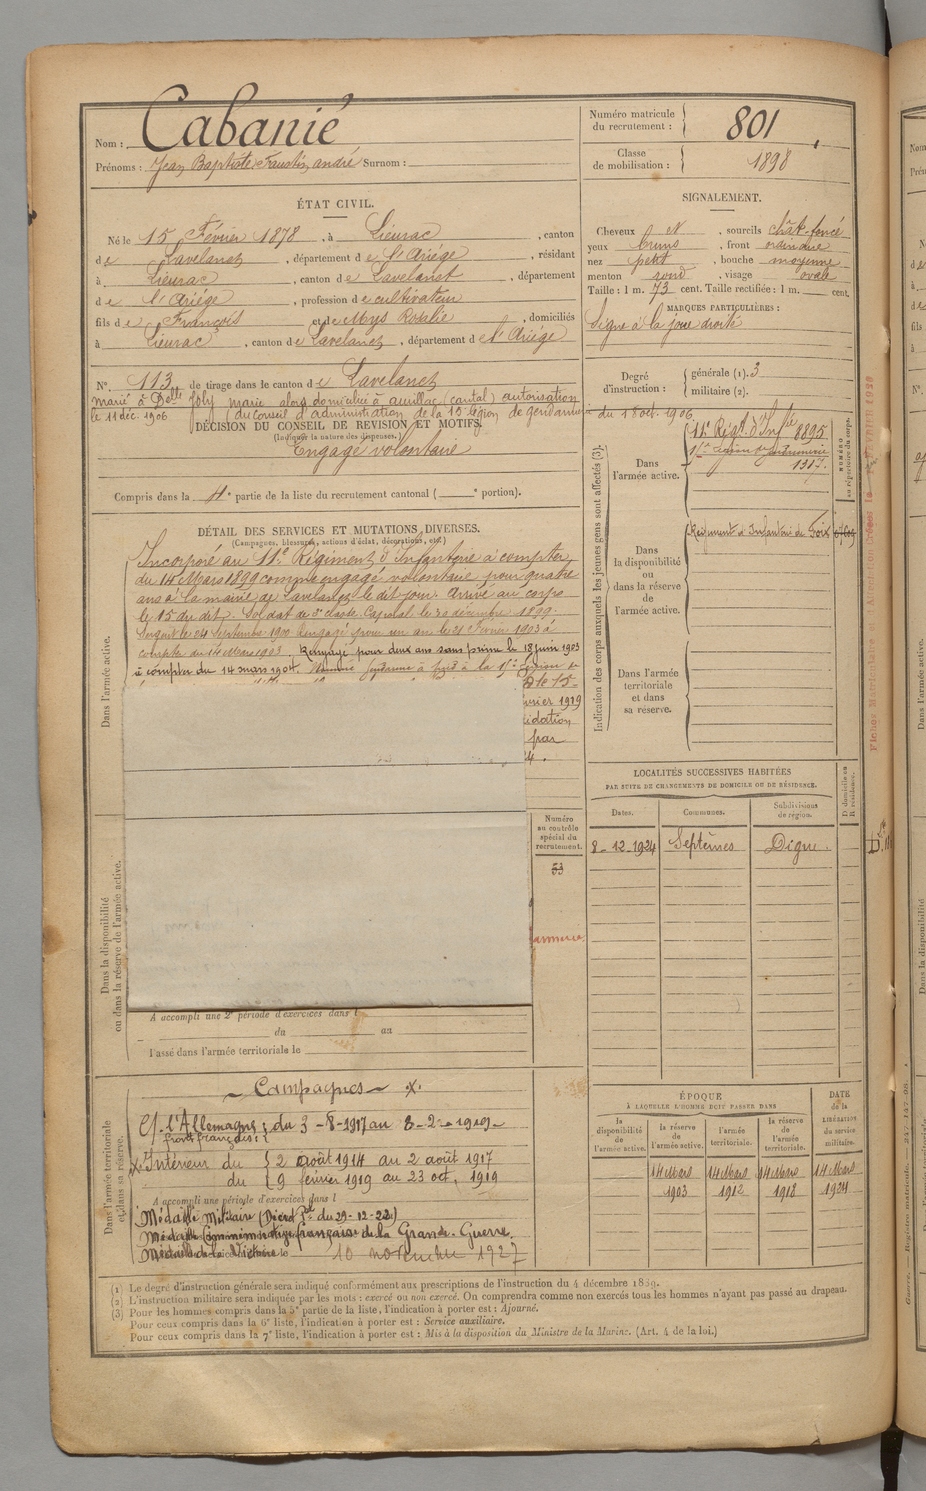 Nom : Cabanié
Prénoms : Jean Baptiste Faustin andré Surnom :
Numéro matricule du recrutement : 801
Classe de mobilisation : 1898
ÉTAT CIVIL.
Né le 15 Février 1878, à Lieurac, canton
de Lavelanet, département de l'Ariége, résidant
à Lieurac, canton de Lavelanet, département
de l'Ariége, profession de cultivateur
fils de François et de Mys Rosalie, domiciliés
à Lieurac, canton de Lavelanet, département de l'Ariége
SIGNALEMENT.
Cheveux et, sourcils chât. foncé
yeux bruns, front ordinaire
nez petit, bouche moyenne
menton rond, visage ovale
Taille : 1 m. 73 cent. Taille rectifiée : 1 m. cent.
MARQUES PARTICULIÈRES :
Signe à la joue droite
N° 113 de tirage dans le canton de Lavelanet
Marié à Delle Joly marie alors domiciliée à (cantal) autorisation
le 11 déc. 1906 (du Conseil d'administration de la 15e légion de gendarmerie du 18 oct. 1906
DÉCISION DU CONSEIL DE REVISION ET MOTIFS.
(Indiquer la nature des dispenses.)
Engagé volontaire
Compris dans la 4e partie de la liste du recrutement cantonal ( e portion).
Degré d'instruction :
générale (1). 3
militaire (2).
DÉTAIL DES SERVICES ET MUTATIONS DIVERSES.
(Campagnes, blessures, actions d'éclat, décorations, etc.)
Dans l'armée active.
Incorporé au 11e Régiment d'Infanterie à compter
du 14 Mars 1899 comme engagé volontaire pour quatre
ans à la mairie de Lavelanet le dit jour. Arrivé au corps
le 15 du dit. Soldat de 2e classe. Caporal le 30 décembre 1899.
Sergent le 24 Septembre 1900. Rengagé pour un an le 21 Février 1903 à
compter du 14 Mars 1903. Rengagé pour deux ans sans prime le 18 juin 1903
à compter du 14 mars 1904.
le 15
février 1919
par
Indication des corps auxquels les jeunes gens sont affectés (3).
Dans l'armée active.
11e Régt. d'Infie 8895
15e Légion de gendarmerie
1317.
NUMÉRO au répertoire du corps.
Dans la disponibilité ou dans la réserve de l'armée active.
Régiment d'Infanterie de Foix
Dans l'armée territoriale et dans sa réserve.
Fiches Matriculaire et
LOCALITÉS SUCCESSIVES HABITÉES
PAR SUITE DE CHANGEMENTS DE DOMICILE OU DE RÉSIDENCE.
Dates. Communes. Subdivisions de région. D. domicile ou R. résidence.
8-12-1924 Septèmes Digne.
Dans la disponibilité ou dans la réserve de l'armée active.
Numéro au contrôle spécial du recrutement.
53
A accompli une 2e période d'exercices dans l
du au
Passé dans l'armée territoriale le
Dans l'armée territoriale et dans sa réserve.
Campagnes
C/ l'Allemagne : du 3-8-1917 au 8-2-1919
front français :
Intérieur du 2 août 1914 au 2 août 1917
du 9 février 1919 au 23 oct. 1919
A accompli une période d'exercices dans l
Médaille Militaire (Décret du 29-12-22)
Médaille Commémorative française de la Grande Guerre
Médaille de la Victoire
10 novembre 1927
ÉPOQUE
À LAQUELLE L'HOMME DOIT PASSER DANS
la disponibilité de l'armée active. la réserve de l'armée active. l'armée territoriale. la réserve de l'armée territoriale. DATE de la LIBÉRATION du service militaire.
14 Mars 1903 14 Mars 1912 14 Mars 1918 14 Mars 1924
(1) Le degré d'instruction générale sera indiqué conformément aux prescriptions de l'instruction du 4 décembre 1889.
(2) L'instruction militaire sera indiquée par les mots : exercé ou non exercé. On comprendra comme non exercés tous les hommes n'ayant pas passé au drapeau.
(3) Pour les hommes compris dans la 5e partie de la liste, l'indication à porter est : Ajourné.
Pour ceux compris dans la 6e liste, l'indication à porter est : Service auxiliaire.
Pour ceux compris dans la 7e liste, l'indication à porter est : Mis à la disposition du Ministre de la Marine. (Art. 4 de la loi.)